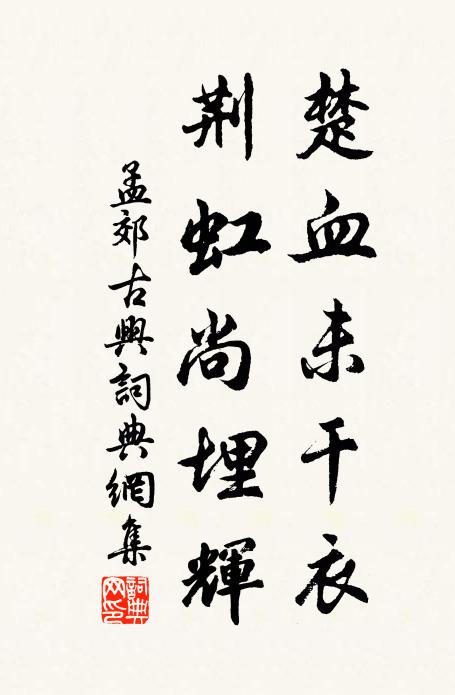 楚血未干衣
荆虹尚埋輝
孟郊古興詞典網集
詞典網印